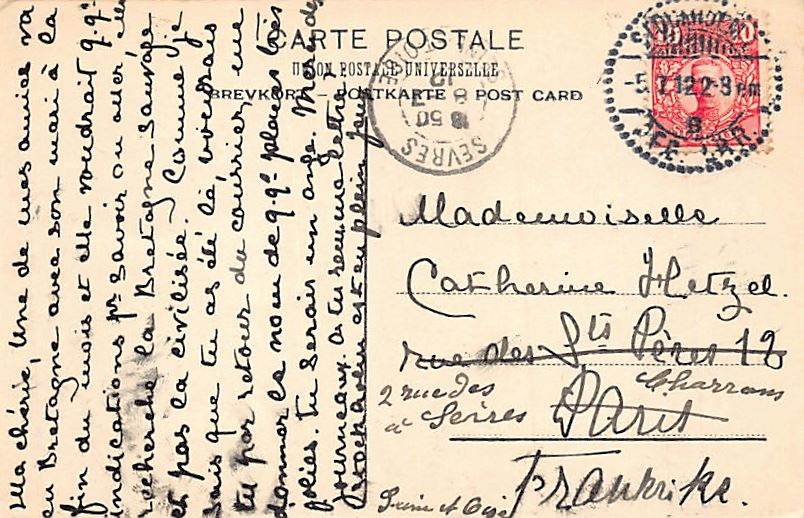 CARTE POSTALE
UNION POSTALE UNIVERSELLE
BREVKORT - POSTKARTE - POST CARD
SEVRES
5.7.12 2-8 em
Mademoiselle
Catherine Hetzel.
rue des Sts Pères 18
2 rue des Charrons
à Sèvres
Paris
Frankrike.
Seine et Oise
Ma chérie, Une de mes amies va
en Bretagne avec son mari à la
fin du mois et elle voudrait q.q.
indications pr savoir où aller, elle
recherche la Bretagne sauvage
et pas la civilisée. Comme je
sais que tu as été là, voudrais
tu par retour du courrier, me
donner le nom de q.q. places très
jolies. Tu serais un ange. Merci des
journaux. As tu reçu ma lettre?
Stockholm est en plein jeux